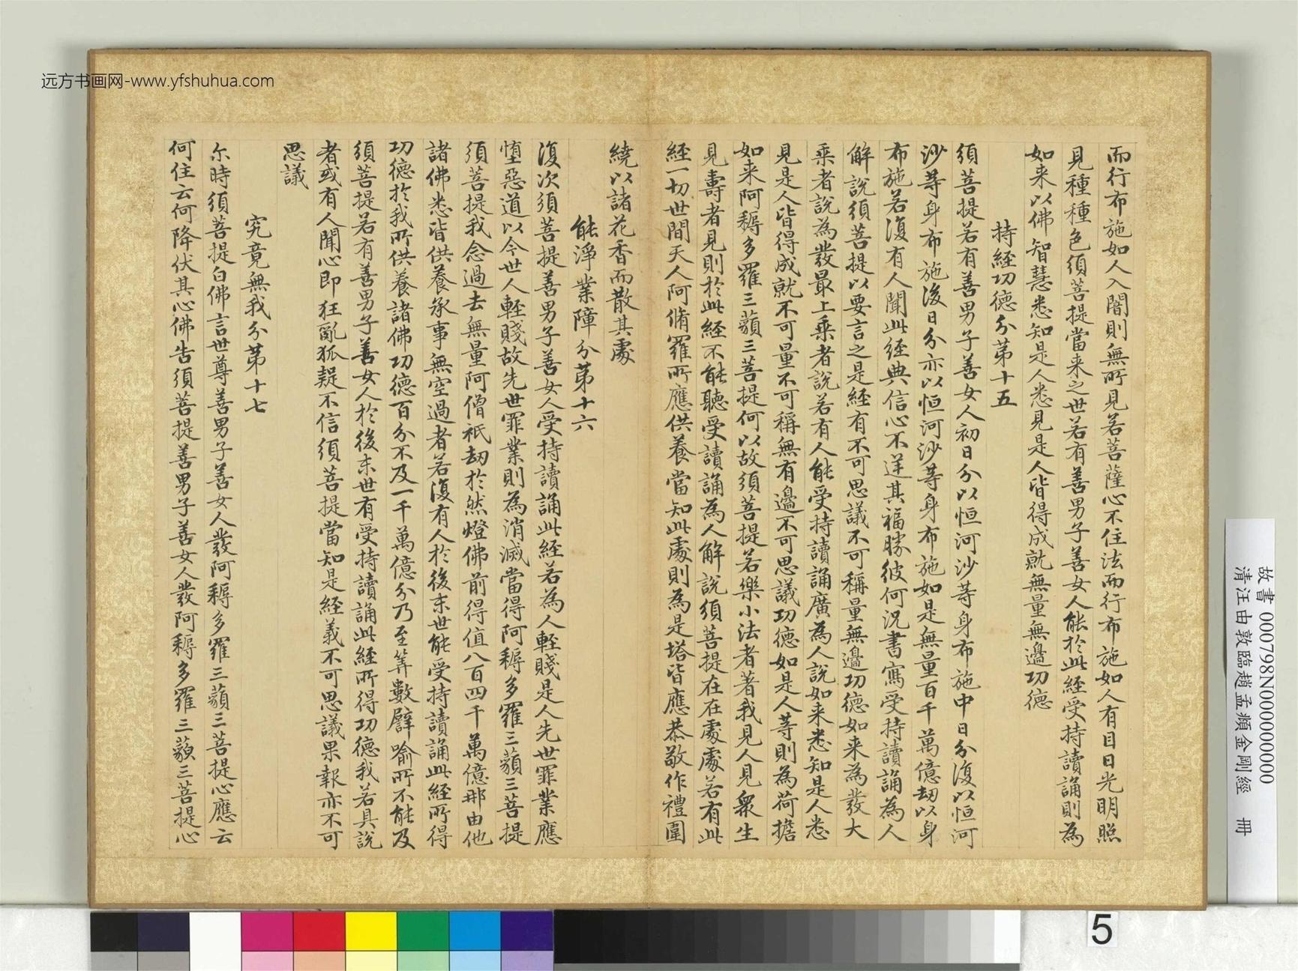 远方书画网-www.yfshuhua.com
而行布施如人入闇則無所見若菩薩心不住法而行布施如人有目日光明照
見種種色須菩提當来之世若有善男子善女人能於此經受持讀誦則為
如来以佛智慧悉知是人悉見是人皆得成就無量無邊功德
持經功德分第十五
須菩提若有善男子善女人初日分以恒河沙等身布施中日分復以恒河
沙等身布施後日分亦以恒河沙等身布施如是無量百千萬億劫以身
布施若復有人聞此經典信心不逆其福勝彼何況書寫受持讀誦為人
解說須菩提以要言之是經有不可思議不可稱量無邊功德如来為發大
乘者說為發最上乘者說若有人能受持讀誦廣為人說如来悉知是人悉
見是人皆得成就不可量不可稱無有邊不可思議功德如是人等則為荷擔
如来阿耨多羅三藐三菩提何以故須菩提若樂小法者著我見人見衆生
見壽者見則於此經不能聽受讀誦為人解說須菩提在在處處若有此
經一切世間天人阿脩羅所應供養當知此處則為是塔皆應恭敬作禮圍
繞以諸花香而散其處
能淨業障分第十六
復次須菩提善男子善女人受持讀誦此經若為人輕賤是人先世罪業應
墮惡道以今世人輕賤故先世罪業則為消滅當得阿耨多羅三藐三菩提
須菩提我念過去無量阿僧祇劫於然燈佛前得值八百四千萬億那由他
諸佛悉皆供養承事無空過者若復有人於後末世能受持讀誦此經所得
功德於我所供養諸佛功德百分不及一千萬億分乃至筭數譬喻所不能及
須菩提若有善男子善女人於後末世有受持讀誦此經所得功德我若具說
者或有人聞心即狂亂狐疑不信須菩提當知是經義不可思議果報亦不可
思議
究竟無我分第十七
尒時須菩提白佛言世尊善男子善女人發阿耨多羅三藐三菩提心應云
何住云何降伏其心佛告須菩提善男子善女人發阿耨多羅三藐三菩提心
故書 000798N000000000
清汪由敦臨趙孟頫金剛經 冊
5